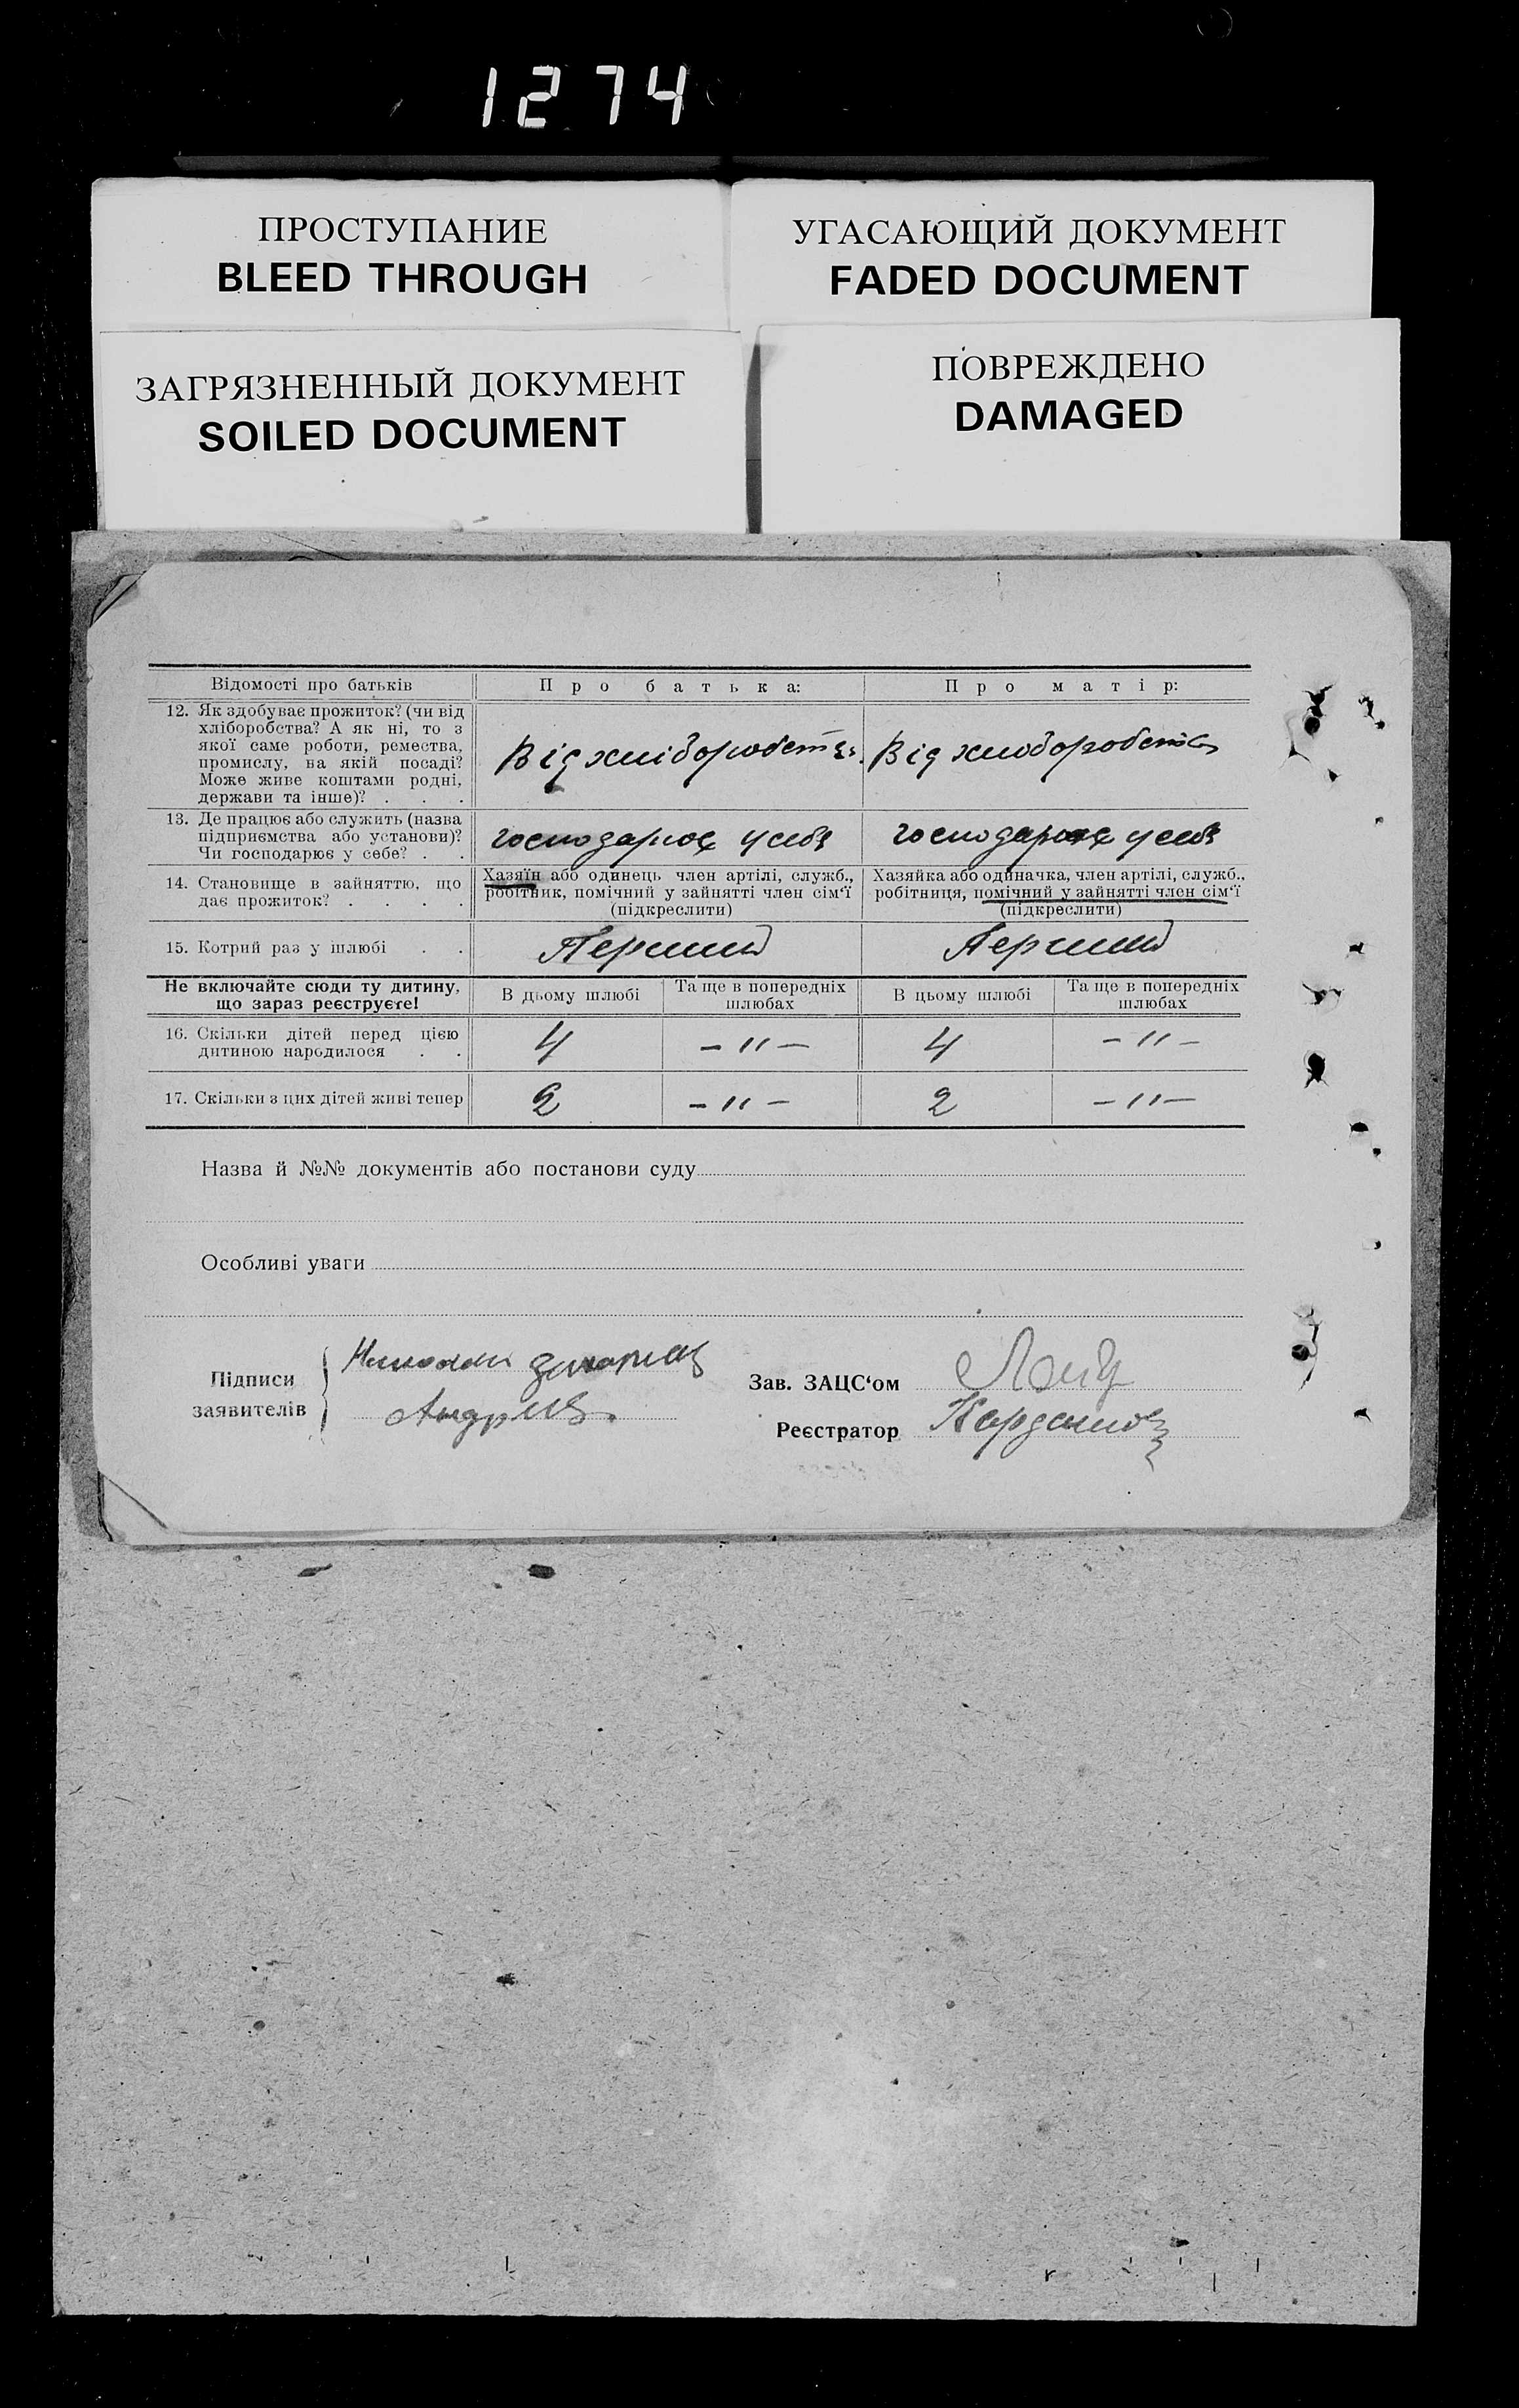 1274
ПРОСТУПАНИЕ
BLEED THROUGH
УГАСАЮЩИЙ ДОКУМЕНТ
FADED DOCUMENT
ЗАГРЯЗНЕННЫЙ ДОКУМЕНТ
SOILED DOCUMENT
ПОВРЕЖДЕНО
DAMAGED
Відомості про батьків
Про батька:
Про матір:
12. Як здобуває прожиток? (чи від
хліборобства? А як ні, то з
якої саме роботи, ремества,
промислу, на якій посаді?
Може живе коштами родні,
держави та інше)? . . .
Від хліборобства
Від хлоборобства
13. Де працює або служить (назва
підприємства або установи)?
Чи господарює у себе? . .
господарює у себе
господарює у себе
14. Становище в зайняттю, що
дає прожиток? . . . .
Хазяїн або одинець член артілі, служб.,
робітник, помічний у зайнятті член сім‘ї
(підкреслити)
Хазяйка або одиначка, член артілі, служб.,
робітниця, помічний у зайнятті член сім‘ї
(підкреслити)
15. Котрий раз у шлюбі . .
Перший
Перший
Не включайте сюди ту дитину,
що зараз реєструєте!
В цьому шлюбі
Та ще в попередніх
шлюбах
В цьому шлюбі
Та ще в попередніх
шлюбах
16. Скільки дітей перед цією
дитиною народилося . .
4
– " –
4
– " –
17. Скільки з цих дітей живі тепер
2
– " –
2
– " –
Назва й №№ документів або постанови суду
Особливі уваги
Підписи
заявителів
Зав. ЗАЦС‘ом
Реєстратор